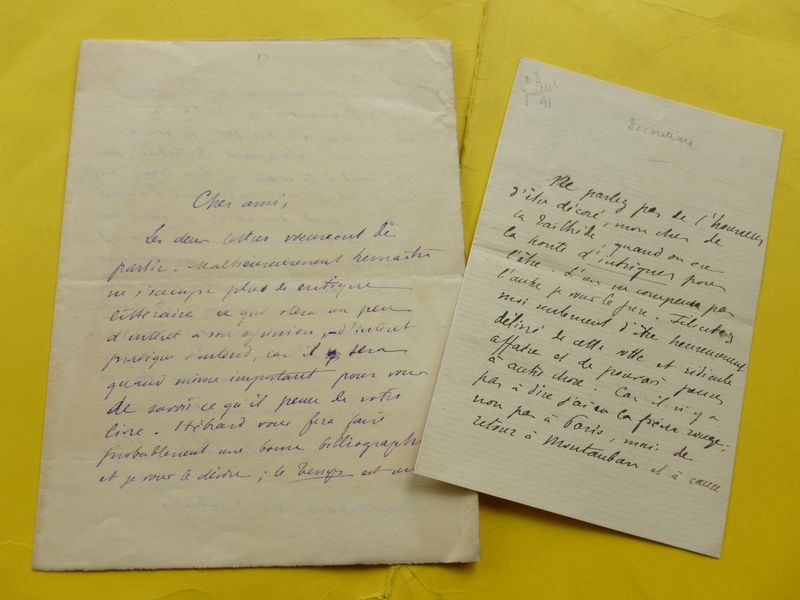 Cher ami,
Les deux lettres viennent de
partir. Malheureusement Lemaitre
ne s'occupe plus de critique
littéraire, ce qui ôtera un peu
d'intérêt à son opinion, - d'intérêt
pratique s'entend, car il sera
quand même important pour vous
de savoir ce qu'il pense de votre
livre. Hébrard vous fera faire
probablement une bonne bibliographie
et je vous le désire ; le Temps est un
23
juillet
91
Decoration
Ne parlez pas de l'honneur
d'être décoré, mon cher de
la Tailhède, quand on en
la honte d'intriguer pour
l'être. L'un ne compense pas
l'autre je vous le jure. Félicitez
moi seulement d'être heureusement
délivré de cette sotte et ridicule
affaire et de pouvoir penser
à autre chose. Car il n'y a
pas à dire j'ai eu la fièvre rouge ;
non pas à Paris, mais de
retour à Montauban et à cause